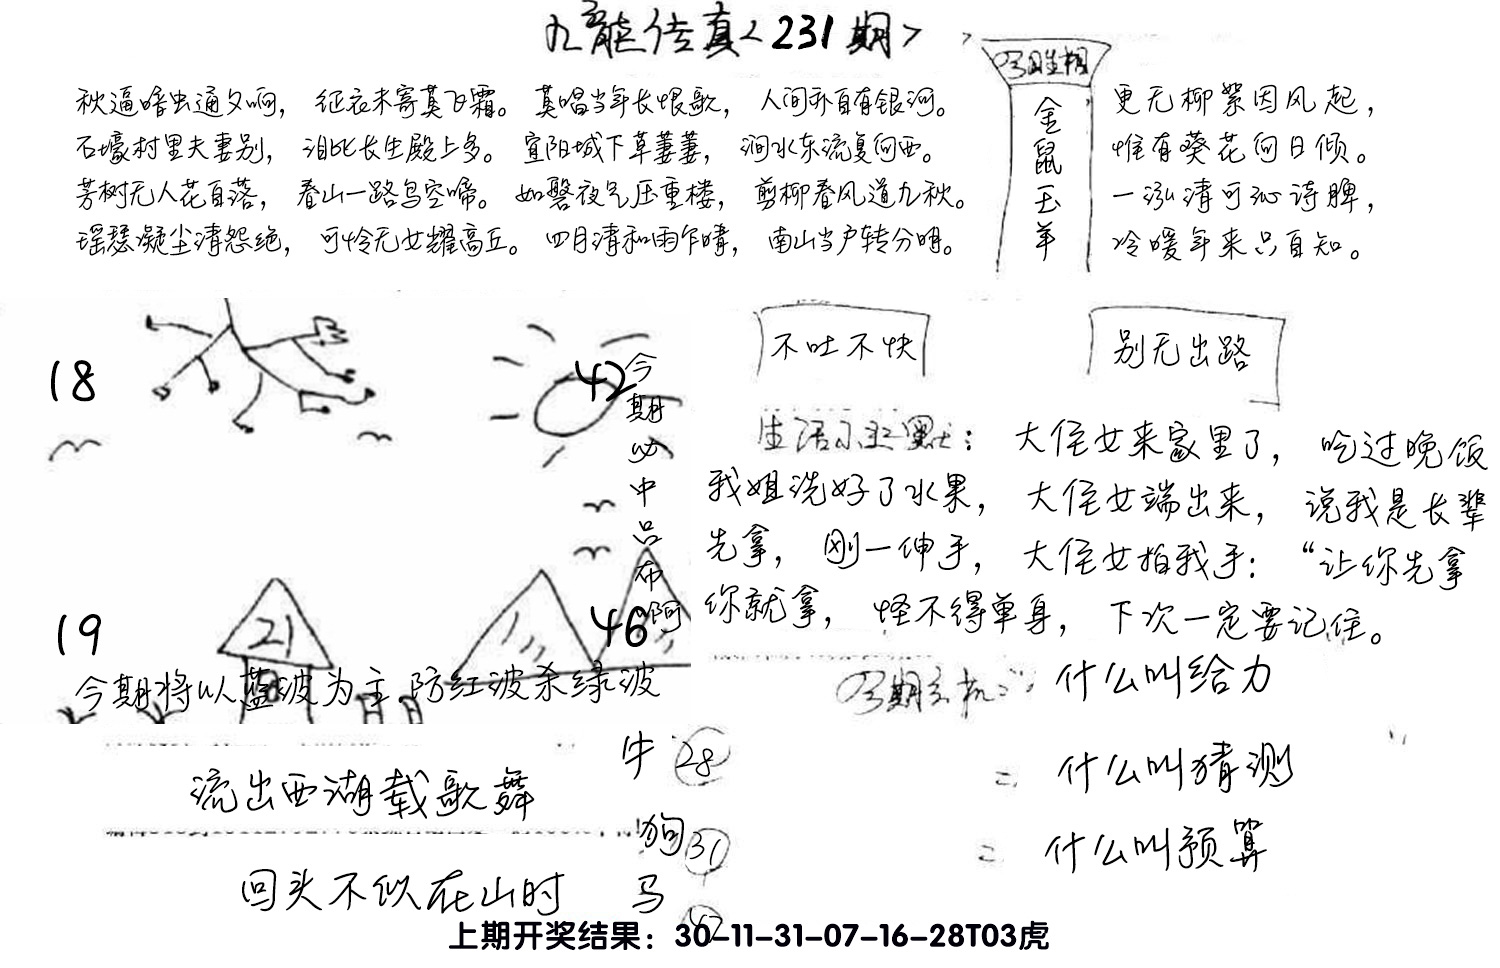 九龙传真<231期>
今日生相
金鼠玉羊
秋逼暗虫通夕响，征衣未寄莫飞霜。莫唱当年长恨歌，人间亦自有银河。
石壕村里夫妻别，泪比长生殿上多。宜阳城下草萋萋，涧水东流复向西。
芳树无人花自落，春山一路鸟空啼。如磐夜气压重楼，剪柳春风道九秋。
瑶瑟凝尘清怨绝，可怜无女耀高丘。四月清和雨乍晴，南山当户转分明。
更无柳絮因风起，
惟有葵花向日倾。
一泓清可沁诗脾，
冷暖年来只自知。
18
42
19
21
46
今期必中吕布啊
今期将以蓝波为主.防红波杀绿波
不吐不快
别无出路
生活小幽默：大侄女来家里了，吃过晚饭
我姐洗好了水果，大侄女端出来，说我是长辈
先拿，刚一伸手，大侄女拍我手：“让你先拿
你就拿，怪不得单身，下次一定要记住。
今期玄机：什么叫给力
= 什么叫猜测
= 什么叫预算
流出西湖载歌舞
回头不似在山时
牛 28
狗 31
马 42
上期开奖结果：30-11-31-07-16-28T03虎